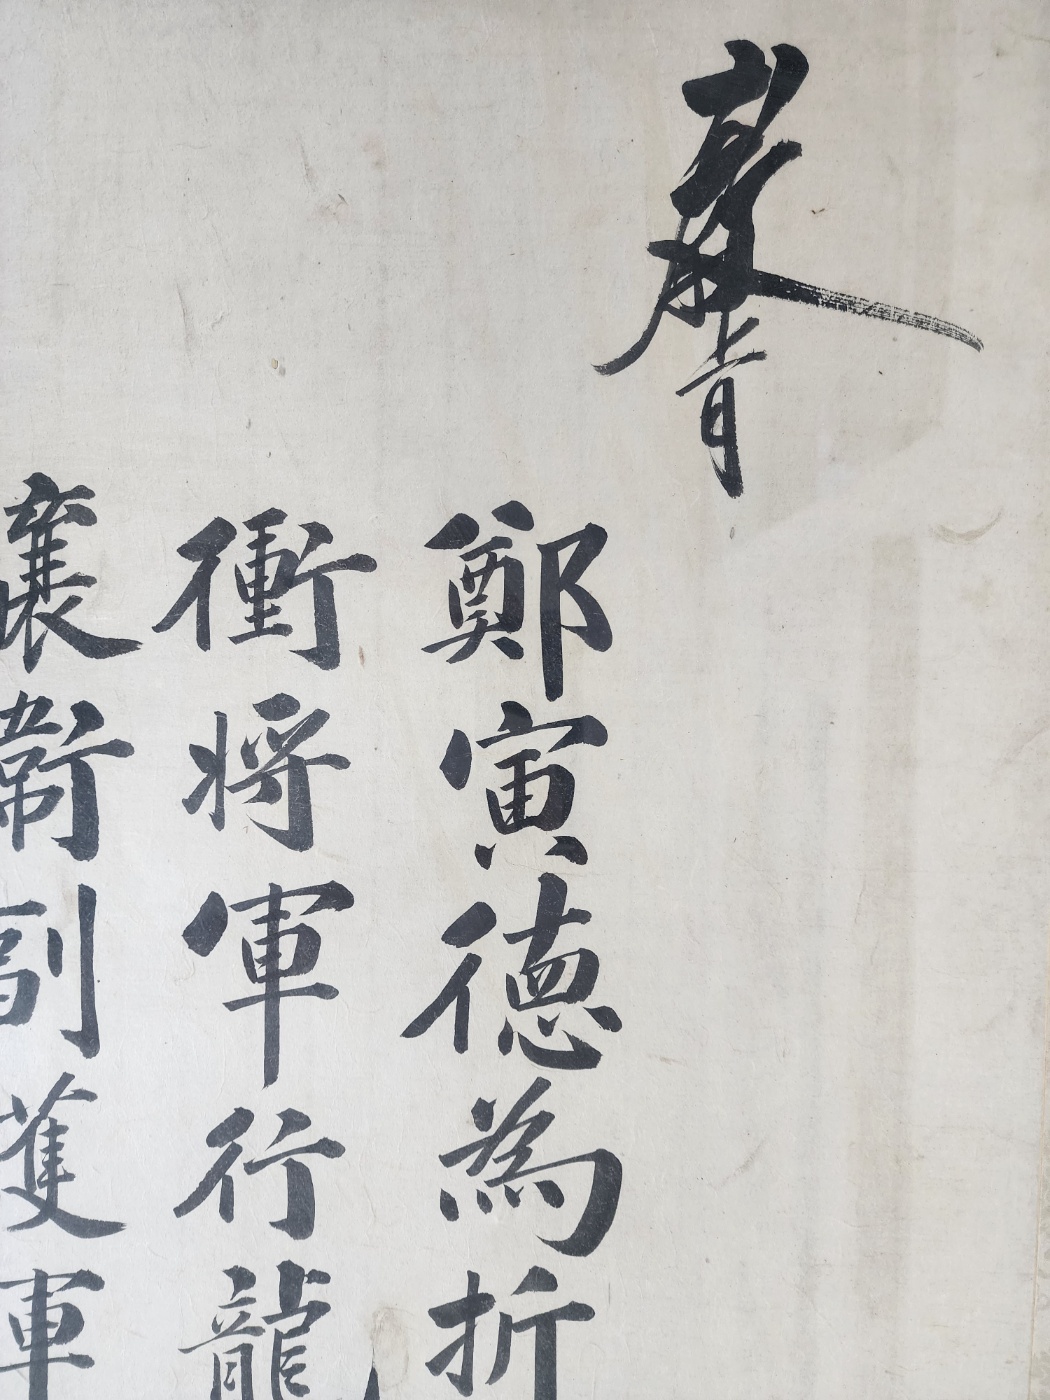 敎旨
鄭寅德為折
衝將軍行龍
驤衛副護軍